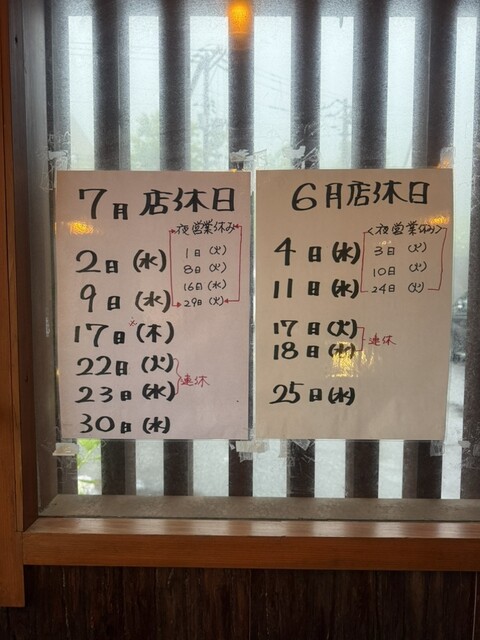 7月 店休日
夜営業休み
1日 (火)
8日 (火)
16日 (水)
29日 (火)
2日 (水)
9日 (水)
17日 (木)
22日 (火)
23日 (水)
連休
30日 (水)
6月店休日
<夜営業休み>
3日 (火)
10日 (火)
24日 (火)
4日 (水)
11日 (水)
17日 (火)
18日 (水)
連休
25日 (水)